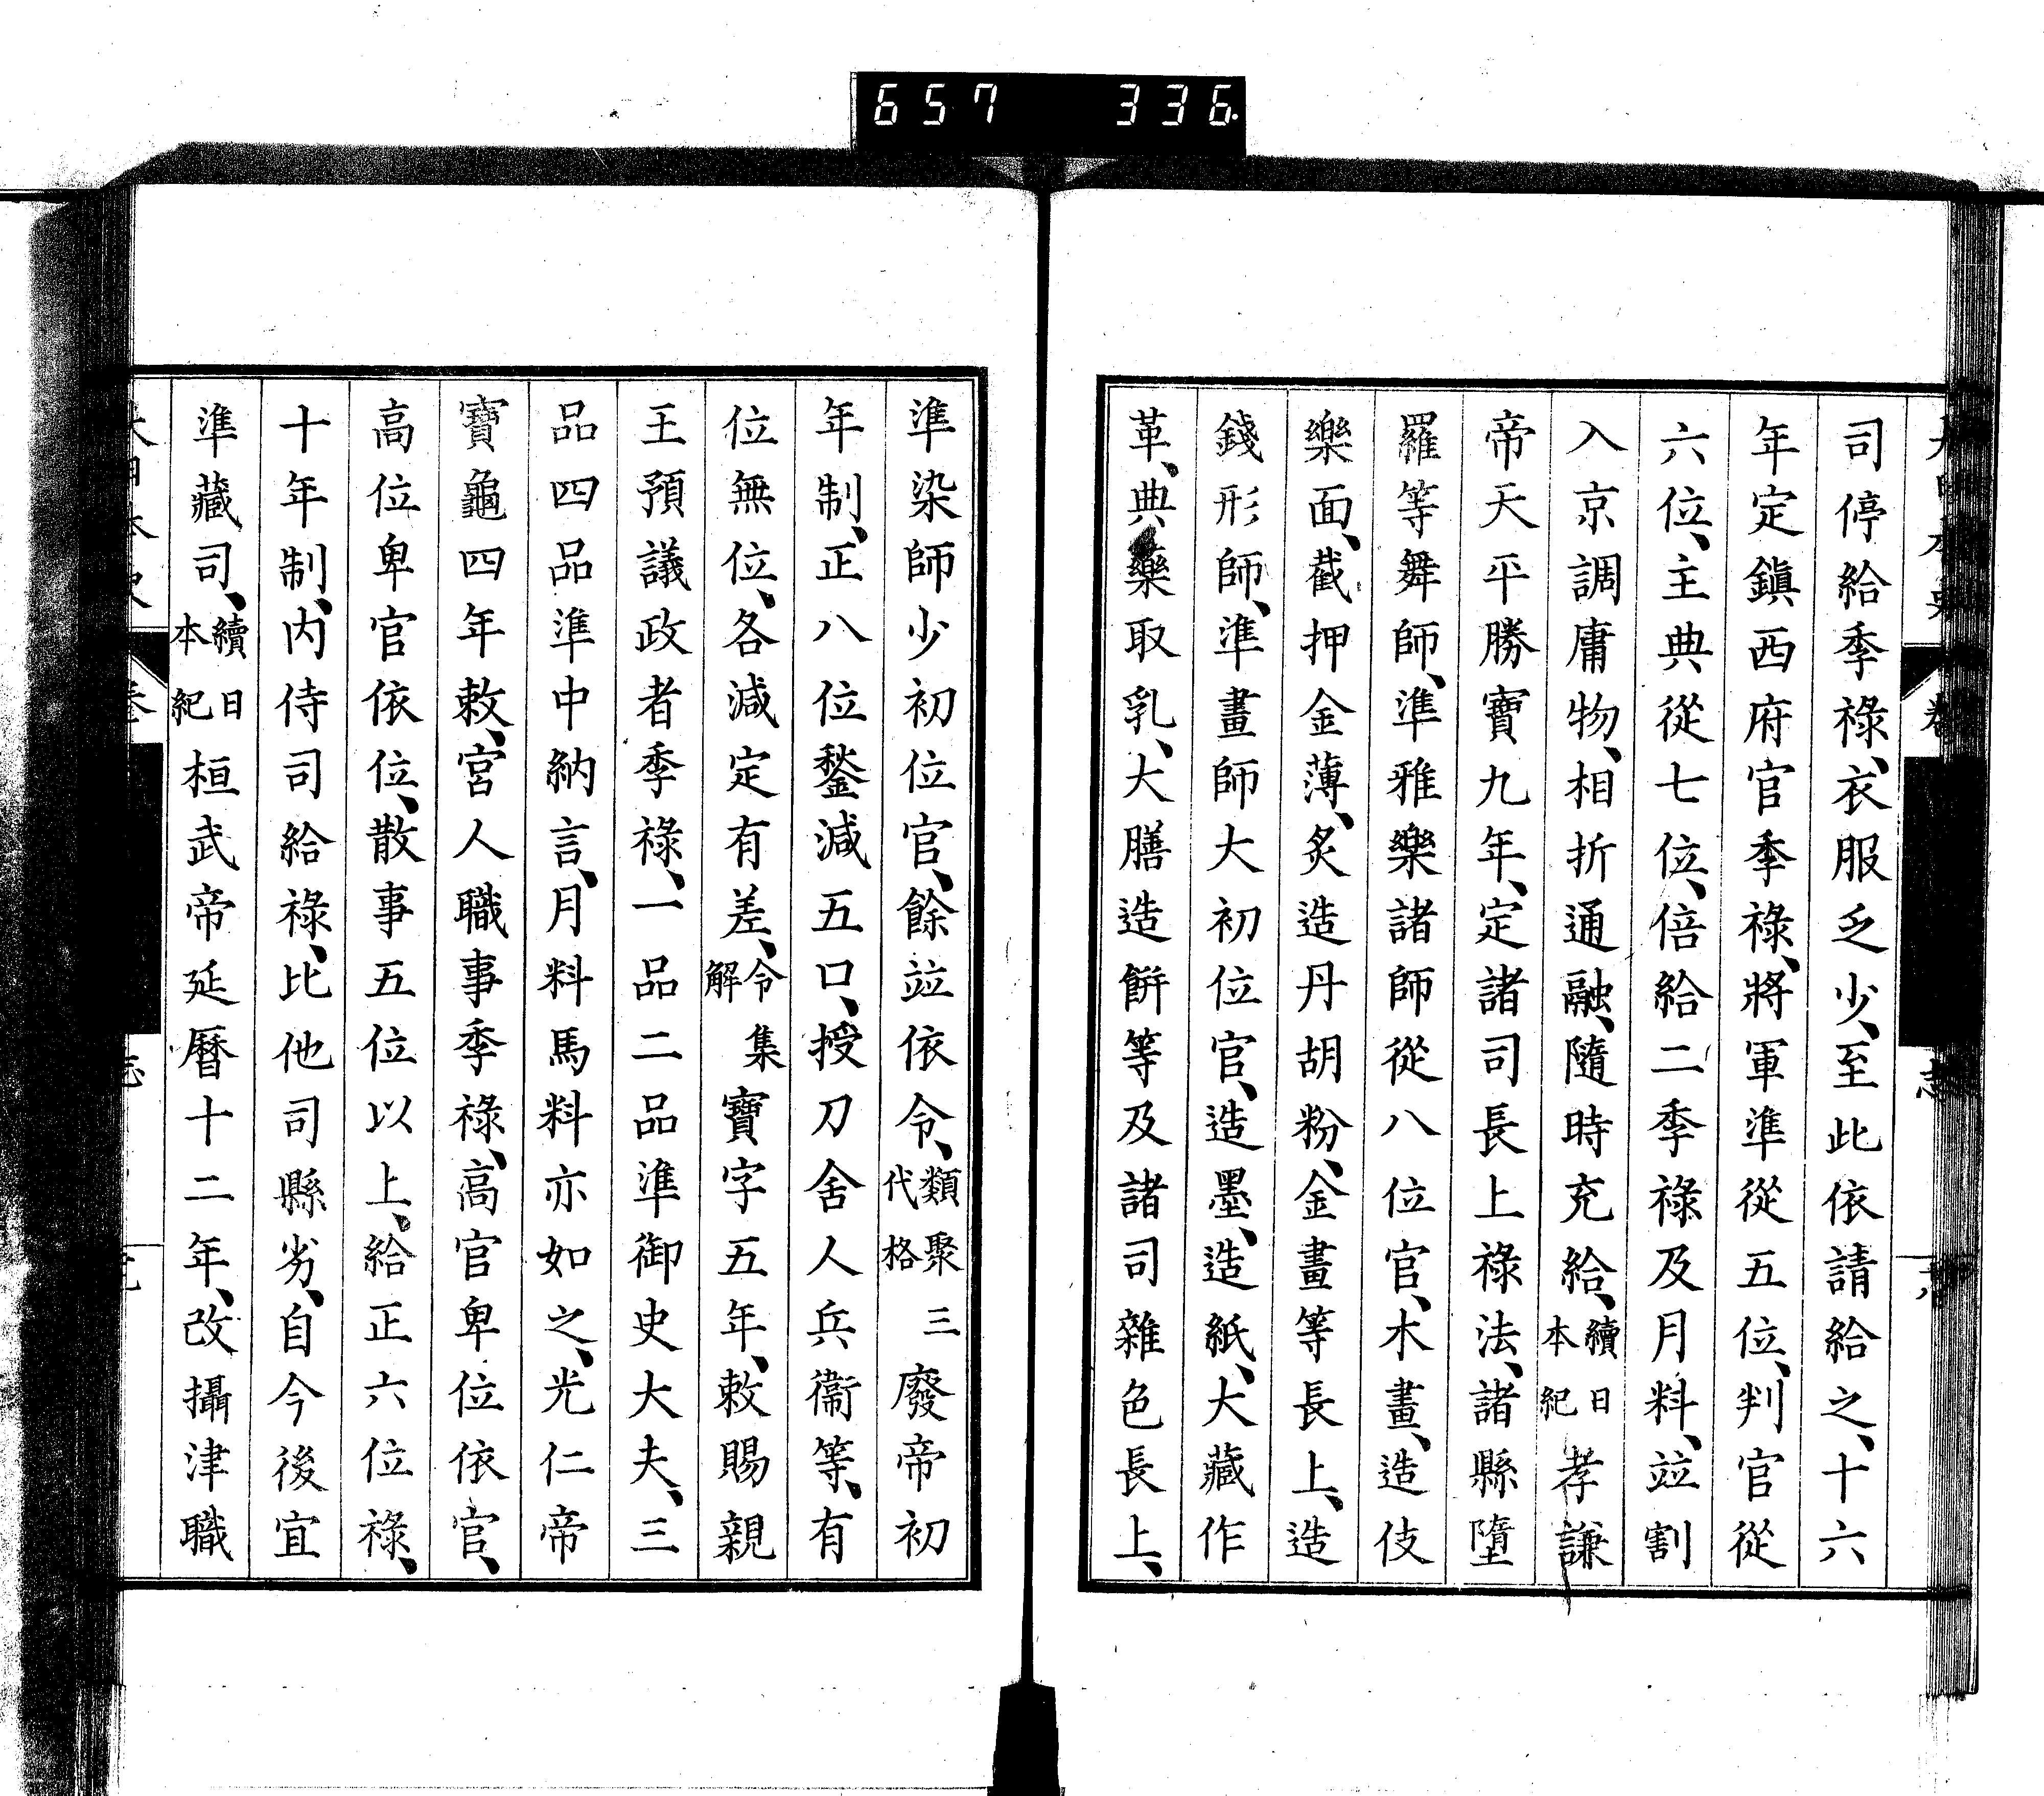 657 336
司停給季祿、衣服乏少、至此依請給之、十六
年定鎭西府官季祿、將軍準從五位、判官從
六位、主典從七位、倍給二季祿及月料、竝割
入京調庸物、相折通融、隨時充給、續日本紀孝謙
帝天平勝寶九年、定諸司長上祿法、諸縣墮
羅等舞師、準雅樂諸師從八位官、木畫、造伎
樂面、截押金薄、炙造丹胡粉、金畫等長上、造
錢形師、準畫師大初位官、造墨、造紙、大藏作
革、典藥取乳、大膳造餠等及諸司雜色長上、
準染師少初位官、餘竝依令、類聚三代格廢帝初
年制、正八位鍫減五口、授刀舍人兵衞等、有
位無位、各減定有差、令集解寶字五年、敕賜親
王預議政者季祿、一品二品準御史大夫、三
品四品準中納言、月料馬料亦如之、光仁帝
寶龜四年敕、宮人職事季祿、高官卑位依官、
高位卑官依位、散事五位以上、給正六位祿、
十年制、內侍司給祿、比他司縣劣、自今後宜
準藏司、續日本紀桓武帝延曆十二年、改攝津職